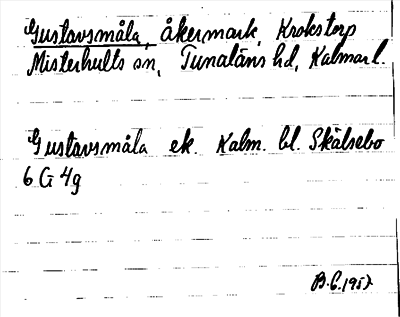 Gustavsmåla, åkermark, Krokstorp
Misterhults sn, Tunaläns hd, Kalmar l.
Gustavsmåla ek. Kalm. bl. Skälsebo
6 G 4g
B.G. 1952